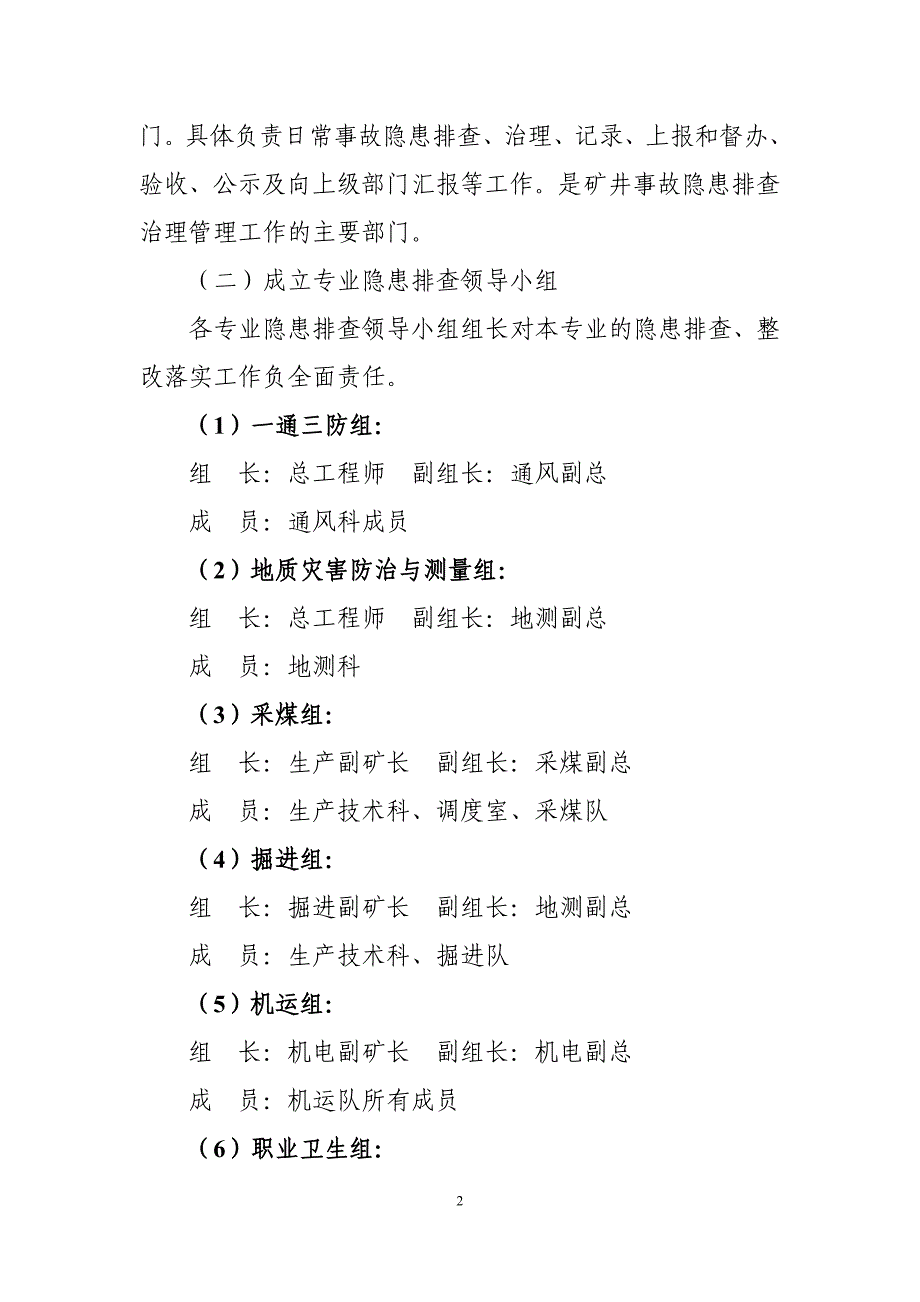 门。具体负责日常事故隐患排查、治理、记录、上报和督办、
验收、公示及向上级部门汇报等工作。是矿井事故隐患排查
治理管理工作的主要部门。
（二）成立专业隐患排查领导小组
各专业隐患排查领导小组组长对本专业的隐患排查、整
改落实工作负全面责任。
（1）一通三防组：
组　长：总工程师　副组长：通风副总
成　员：通风科成员
（2）地质灾害防治与测量组：
组　长：总工程师　副组长：地测副总
成　员：地测科
（3）采煤组：
组　长：生产副矿长　副组长：采煤副总
成　员：生产技术科、调度室、采煤队
（4）掘进组：
组　长：掘进副矿长　副组长：地测副总
成　员：生产技术科、掘进队
（5）机运组：
组　长：机电副矿长　副组长：机电副总
成　员：机运队所有成员
（6）职业卫生组：
2